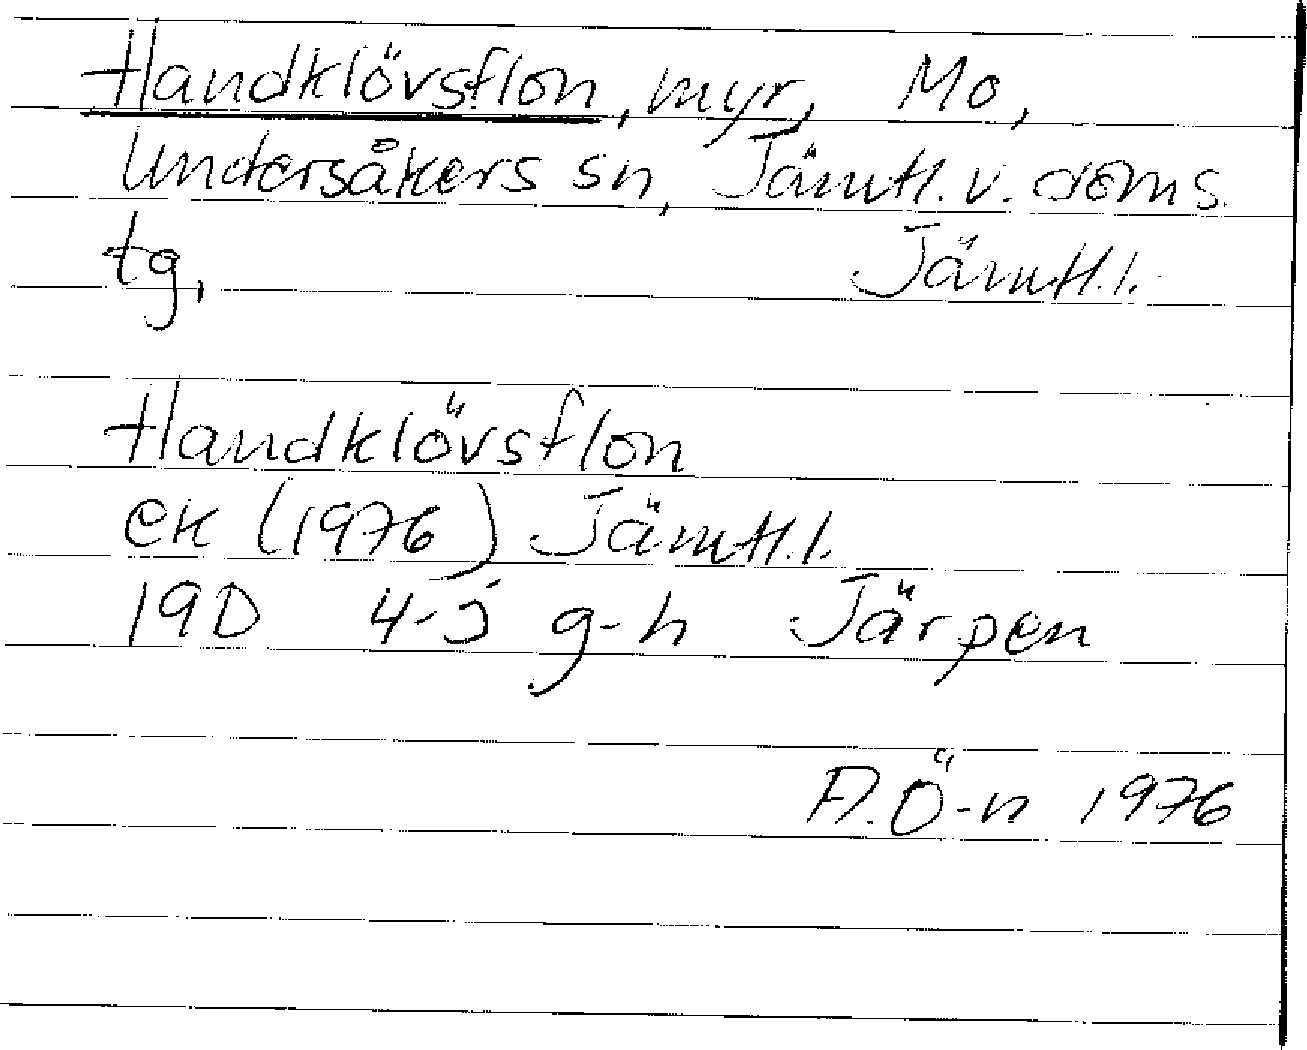 Handklövsflon, myr, Mo,
Undersåkers sn, Jämtl. v. doms.
tg, Jämtl. l.
Handklövsflon
ek (1976) Jämtl. l.
19D 4-j g-h Järpen
A. Ö-n 1976